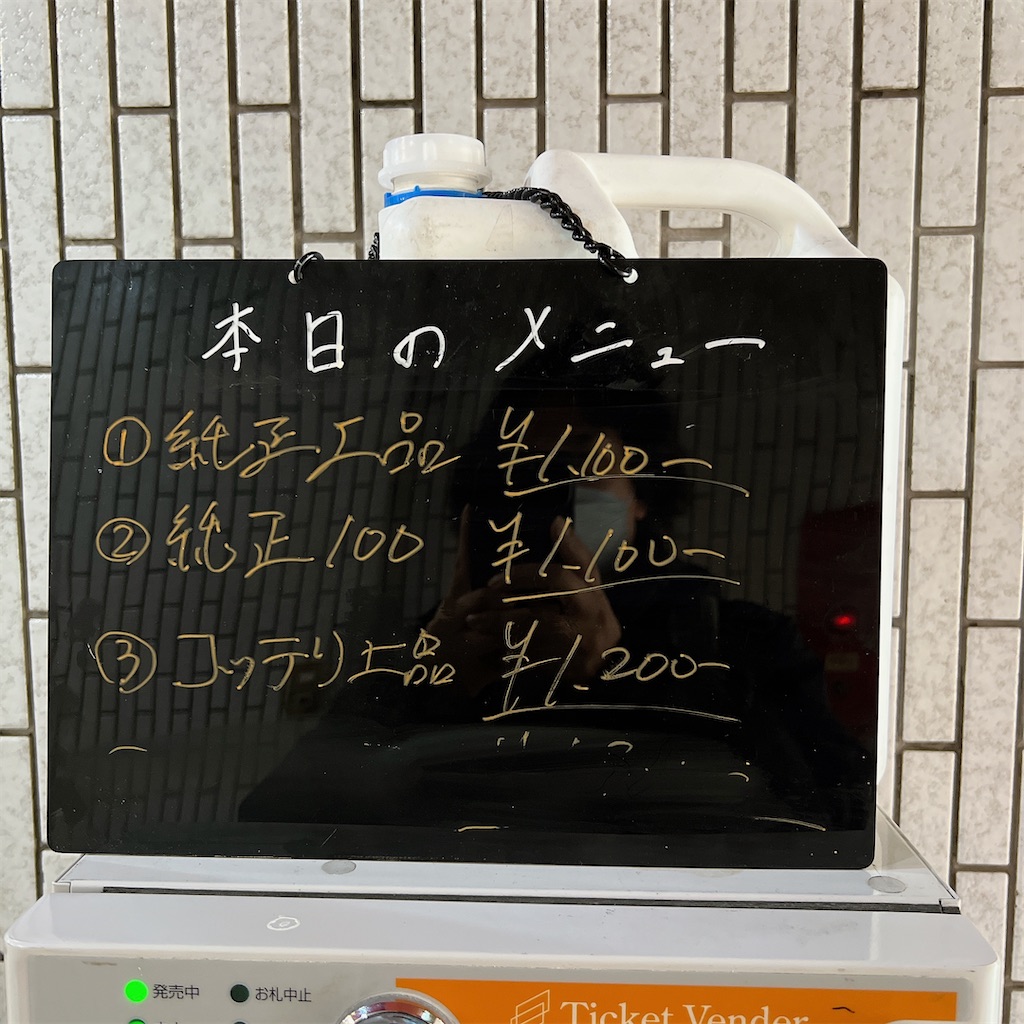 本日のメニュー
① 純正上品 ¥1,100-
② 純正100 ¥1,100-
③ コッテリ上品 ¥1,200-
発売中 お札中止
Ticket Vender